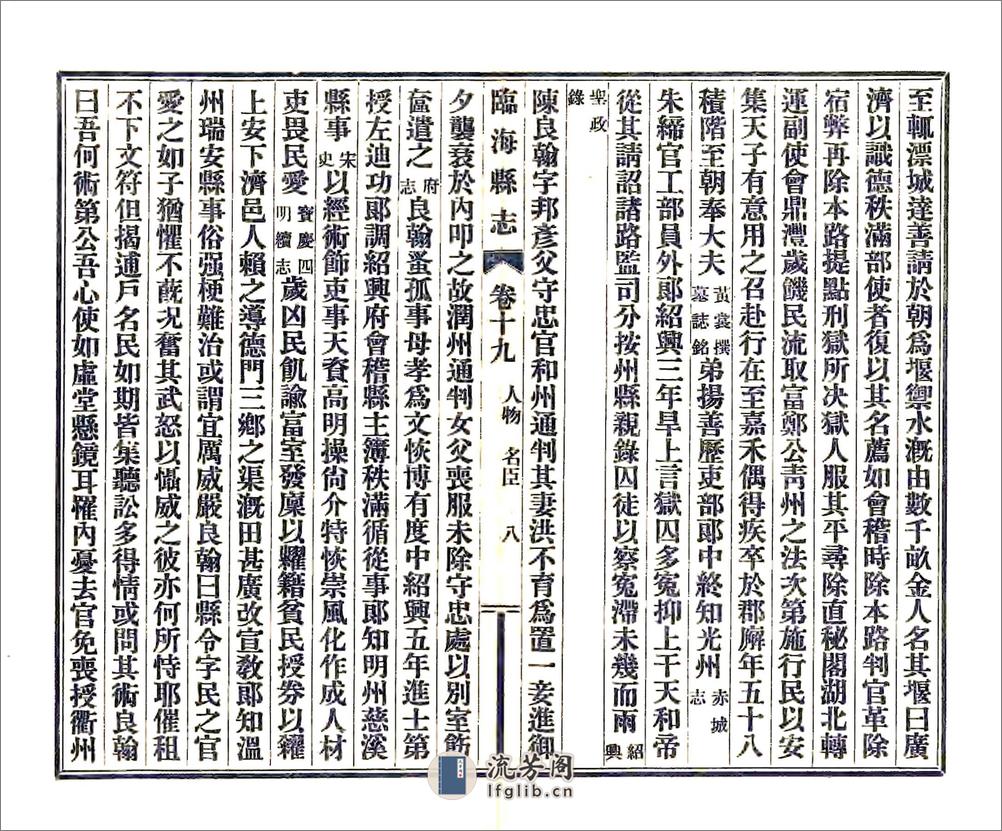 至輒漂城達善請於朝爲堰禦水溉由數千畝金人名其堰曰廣
濟以識德秩滿部使者復以其名薦如會稽時除本路判官革除
宿弊再除本路提點刑獄所決獄人服其平尋除直秘閣湖北轉
運副使會鼎澧歲饑民流取富鄭公靑州之法次第施行民以安
集天子有意用之召赴行在至嘉禾偶得疾卒於郡廨年五十八
積階至朝奉大夫黃裳撰墓誌銘弟揚善歷吏部郞中終知光州赤城志
朱締官工部員外郞紹興三年旱上言獄囚多寃抑上干天和帝
從其請詔諸路監司分按州縣親錄囚徒以察寃滯未幾而雨紹興
聖政錄
陳良翰字邦彥父守忠官和州通判其妻洪不育爲置一妾進御
臨海縣志 卷十九 人物 名臣 八
夕襲衰於內叩之故潤州通判女父喪服未除守忠處以別室飭
奩遣之府志良翰蚤孤事母孝爲文恢博有度中紹興五年進士第
授左迪功郞調紹興府會稽縣主簿秩滿循從事郞知明州慈溪
縣事宋史以經術飾吏事天資高明操尙介特恢崇風化作成人材
吏畏民愛寶慶四明續志歲凶民飢諭富室發廩以糶籍貧民授券以糴
上安下濟邑人賴之導德門三鄕之渠溉田甚廣改宣敎郞知溫
州瑞安縣事俗强梗難治或謂宜厲威嚴良翰曰縣令字民之官
愛之如子猶懼不旣况奮其武怒以懾威之彼亦何所恃耶催租
不下文符但揭逋戶名民如期皆集聽訟多得情或問其術良翰
曰吾何術第公吾心使如虛堂懸鏡耳罹內憂去官免喪授衢州
流芳阁
lfglib.cn